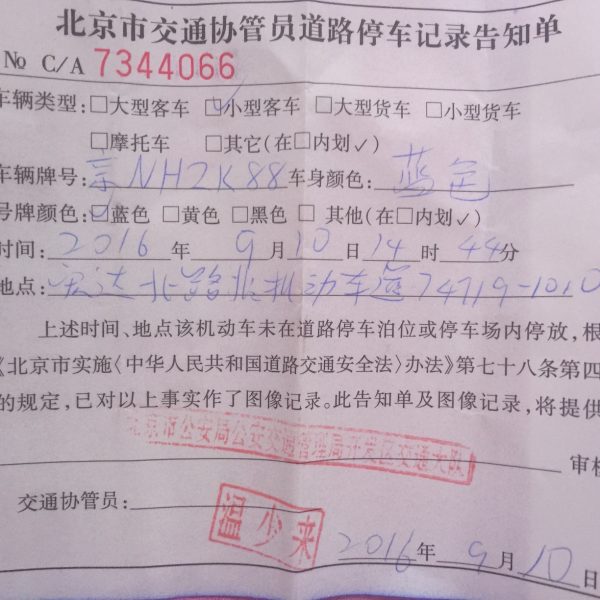 北京市交通协管员道路停车记录告知单
No C/A 7344066
车辆类型:□大型客车 ☑小型客车 □大型货车 □小型货车
□摩托车 □其它(在□内划✓)
车辆牌号:京NH2K88 车身颜色:蓝色
号牌颜色:☑蓝色 □黄色 □黑色 □ 其他(在□内划✓)
时间:2016年9月10日14时44分
地点:宏达北路非机动车道74719-1010
上述时间、地点该机动车未在道路停车泊位或停车场内停放,根
《北京市实施〈中华人民共和国道路交通安全法〉办法》第七十八条第四
的规定,已对以上事实作了图像记录。此告知单及图像记录,将提供
北京市公安局公安交通管理局开发区交通大队
审核
交通协管员:
温少来
2016年9月10日